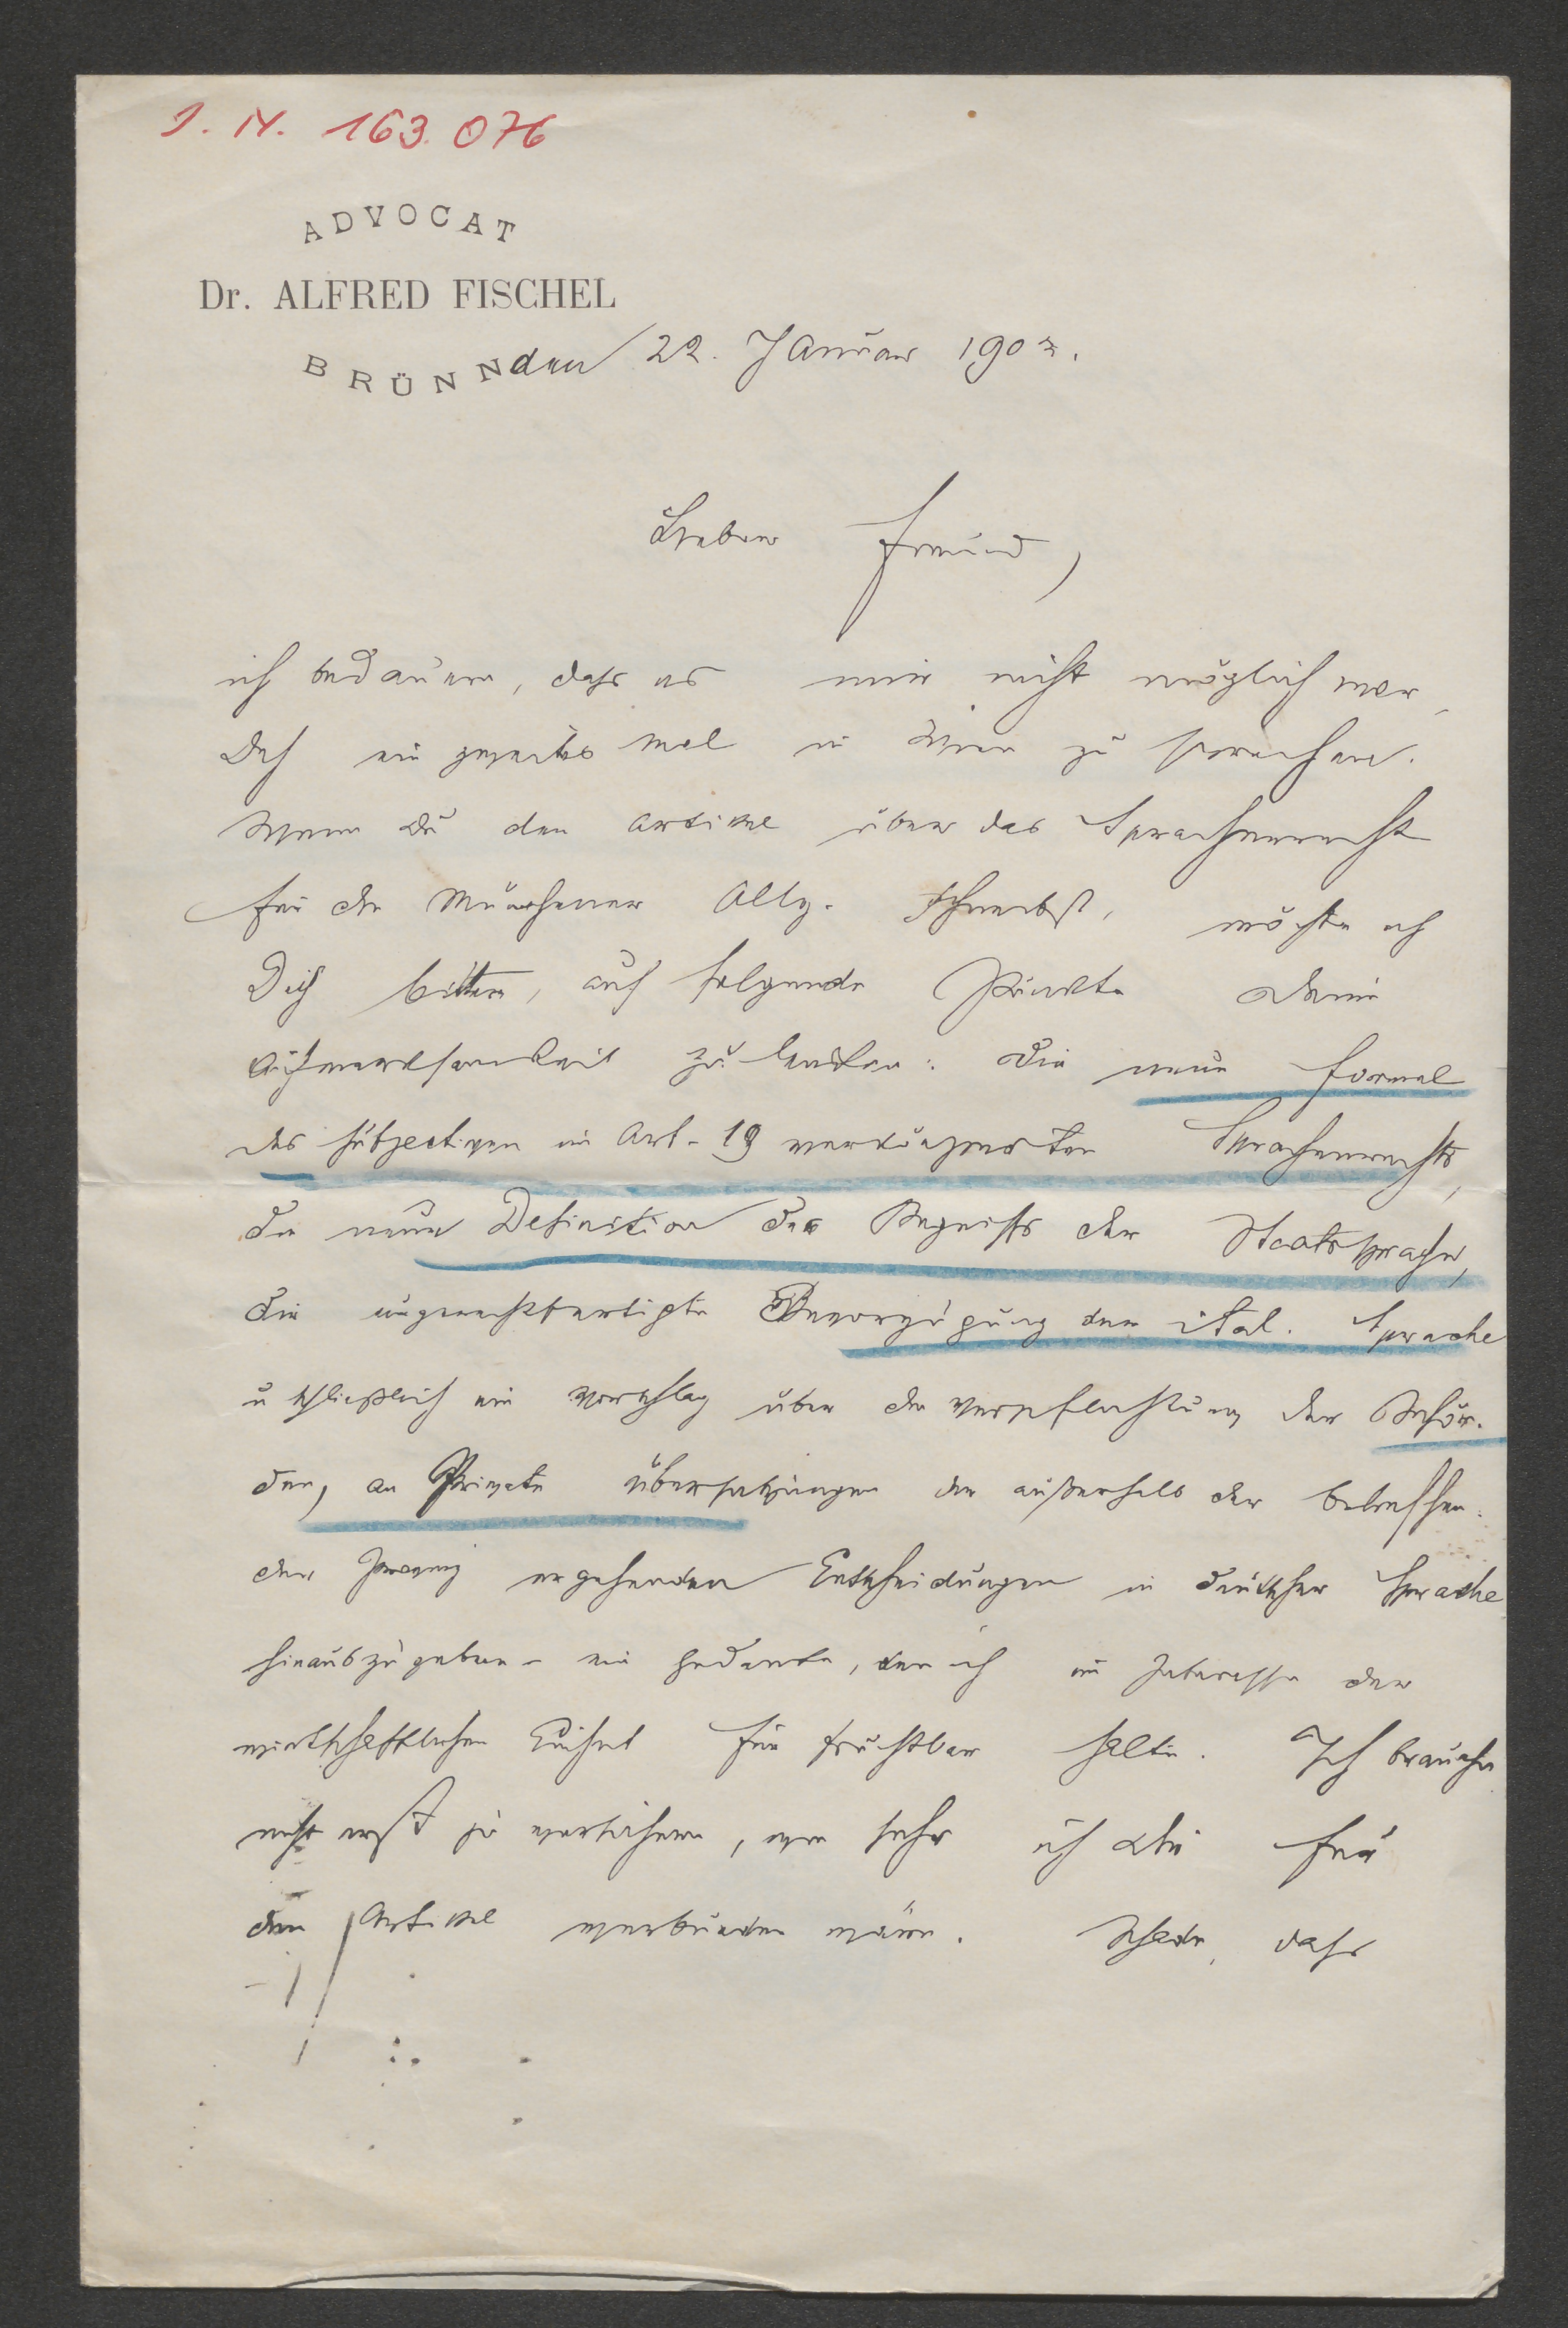 I. N. 163.076
ADVOCAT
Dr. ALFRED FISCHEL
BRÜNN den 22. Januar 1902.
Lieber Freund,
ich bedauere, dass es mir nicht möglich war,
Dich ein zweites Mal in Wien zu sprechen.
Wenn Du den Artikel über das Sprachenrecht
für die Münchener Allg. schreibst, möchte ich
Dich bitten, auf folgende Punkte Deine
Aufmerksamkeit zu lenken: die neue Formel
des subjectiven im Art. 19 Sprachenrechts,
die neue Definition des Begriffs der Staatssprache,
die ungerechtfertigte Bevorzugung der ital. Sprache
u schließlich ein Vorschlag über die Verpflichtung der Behör-
den, an Private Übersetzungen der außerhalb der betreffen-
den Provinz ergehenden Entscheidungen in deutscher Sprache
hinauszugeben - ein Gedanke, den ich im Interesse der
wirtschaftlichen Einheit für fruchtbar halte. Ich brauche
nicht erst zu versichern, wie sehr ich Dir für
den Artikel verbunden wäre. Schade, dass